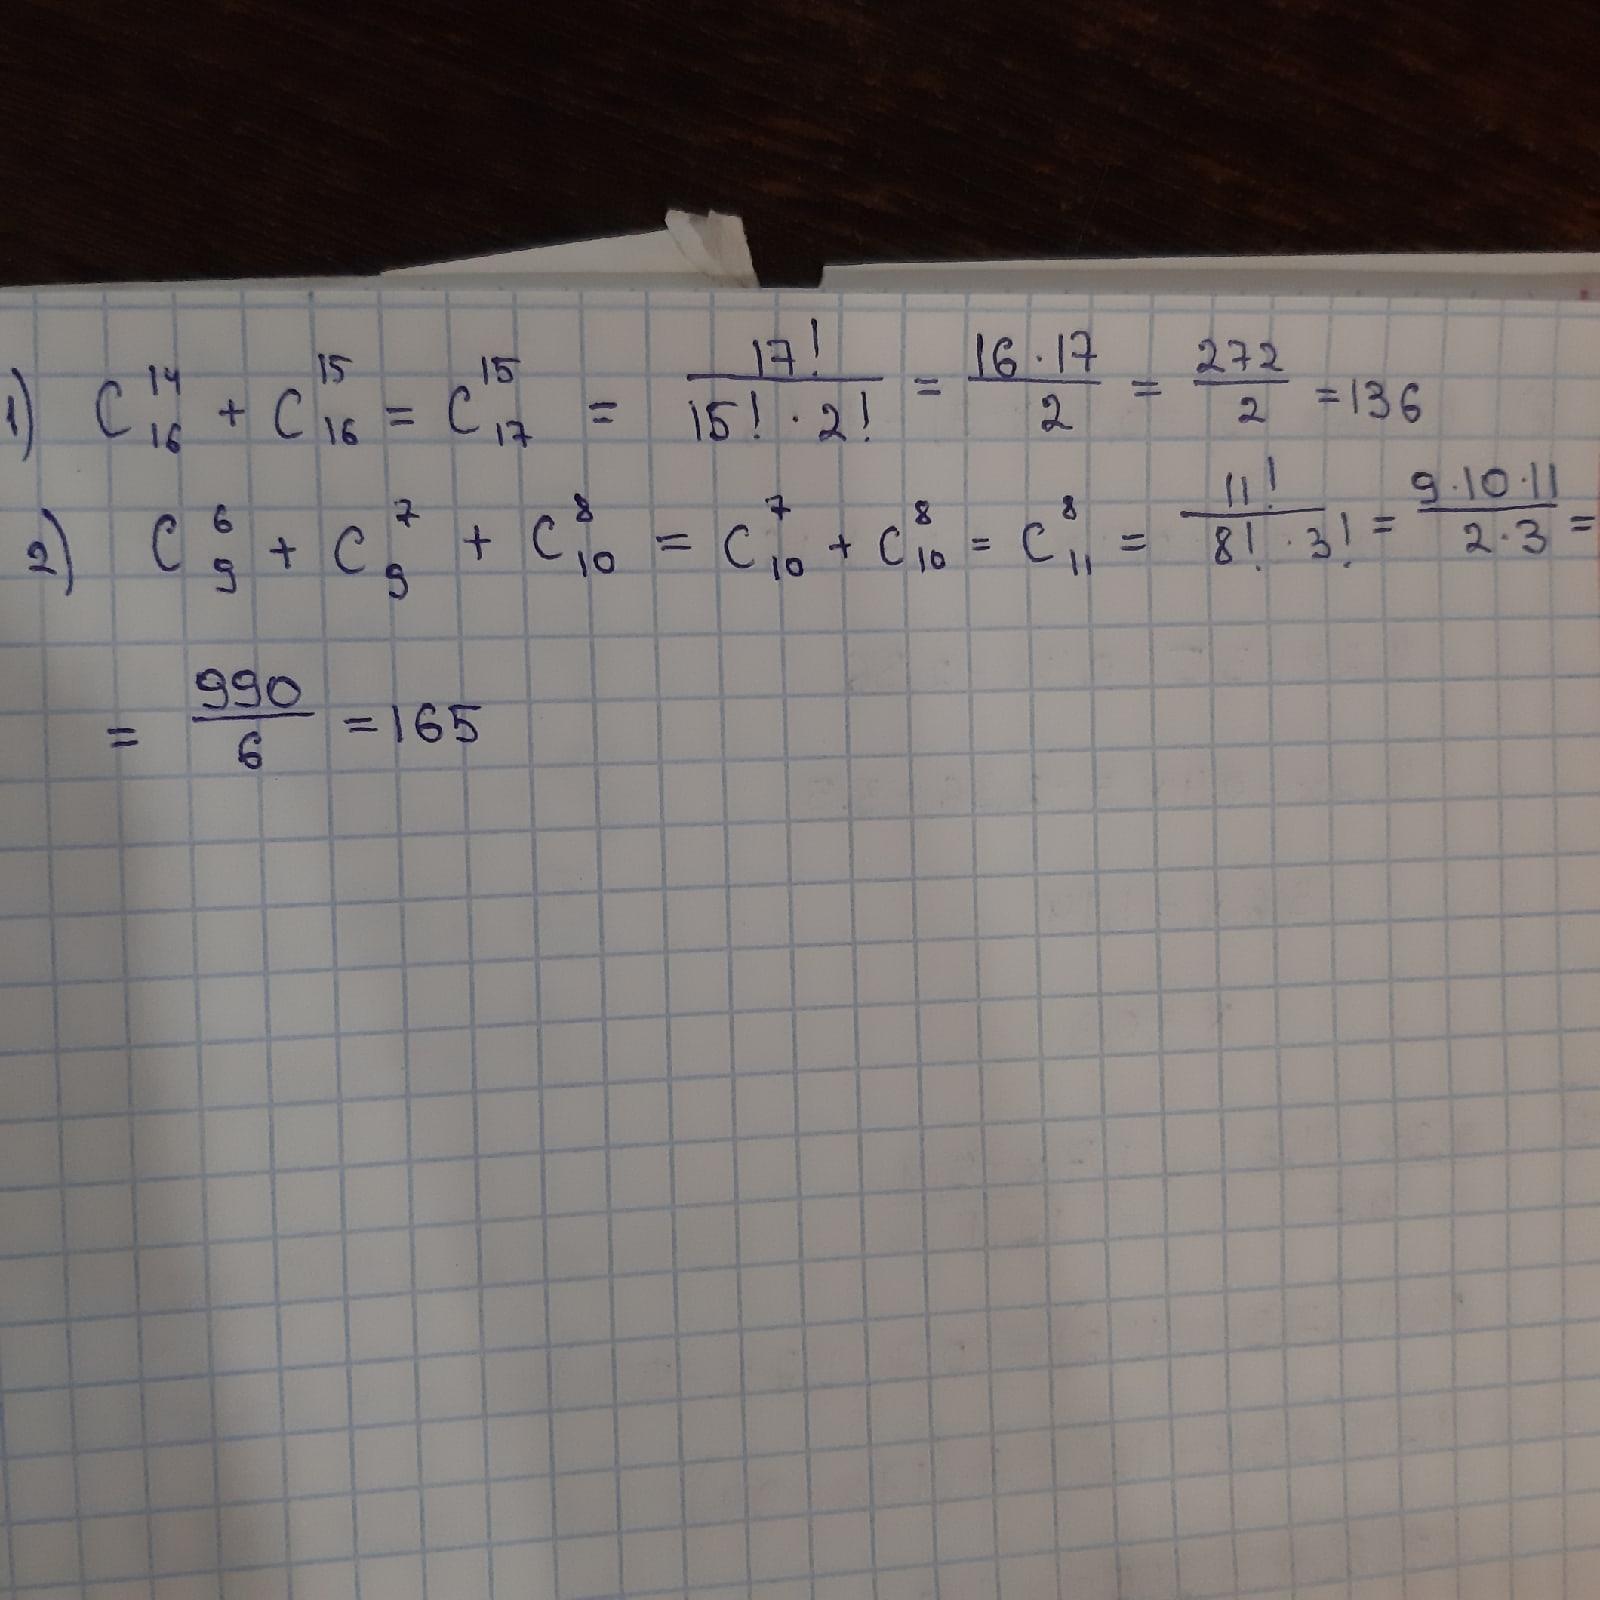 1) C₁₆¹⁴ + C₁₆¹⁵ = C₁₇¹⁵ = 17! / (15! · 2!) = 16 · 17 / 2 = 272 / 2 = 136
2) C₉⁶ + C₉⁷ + C₁₀⁸ = C₁₀⁷ + C₁₀⁸ = C₁₁⁸ = 11! / (8! · 3!) = 9 · 10 · 11 / (2 · 3) =
= 990 / 6 = 165